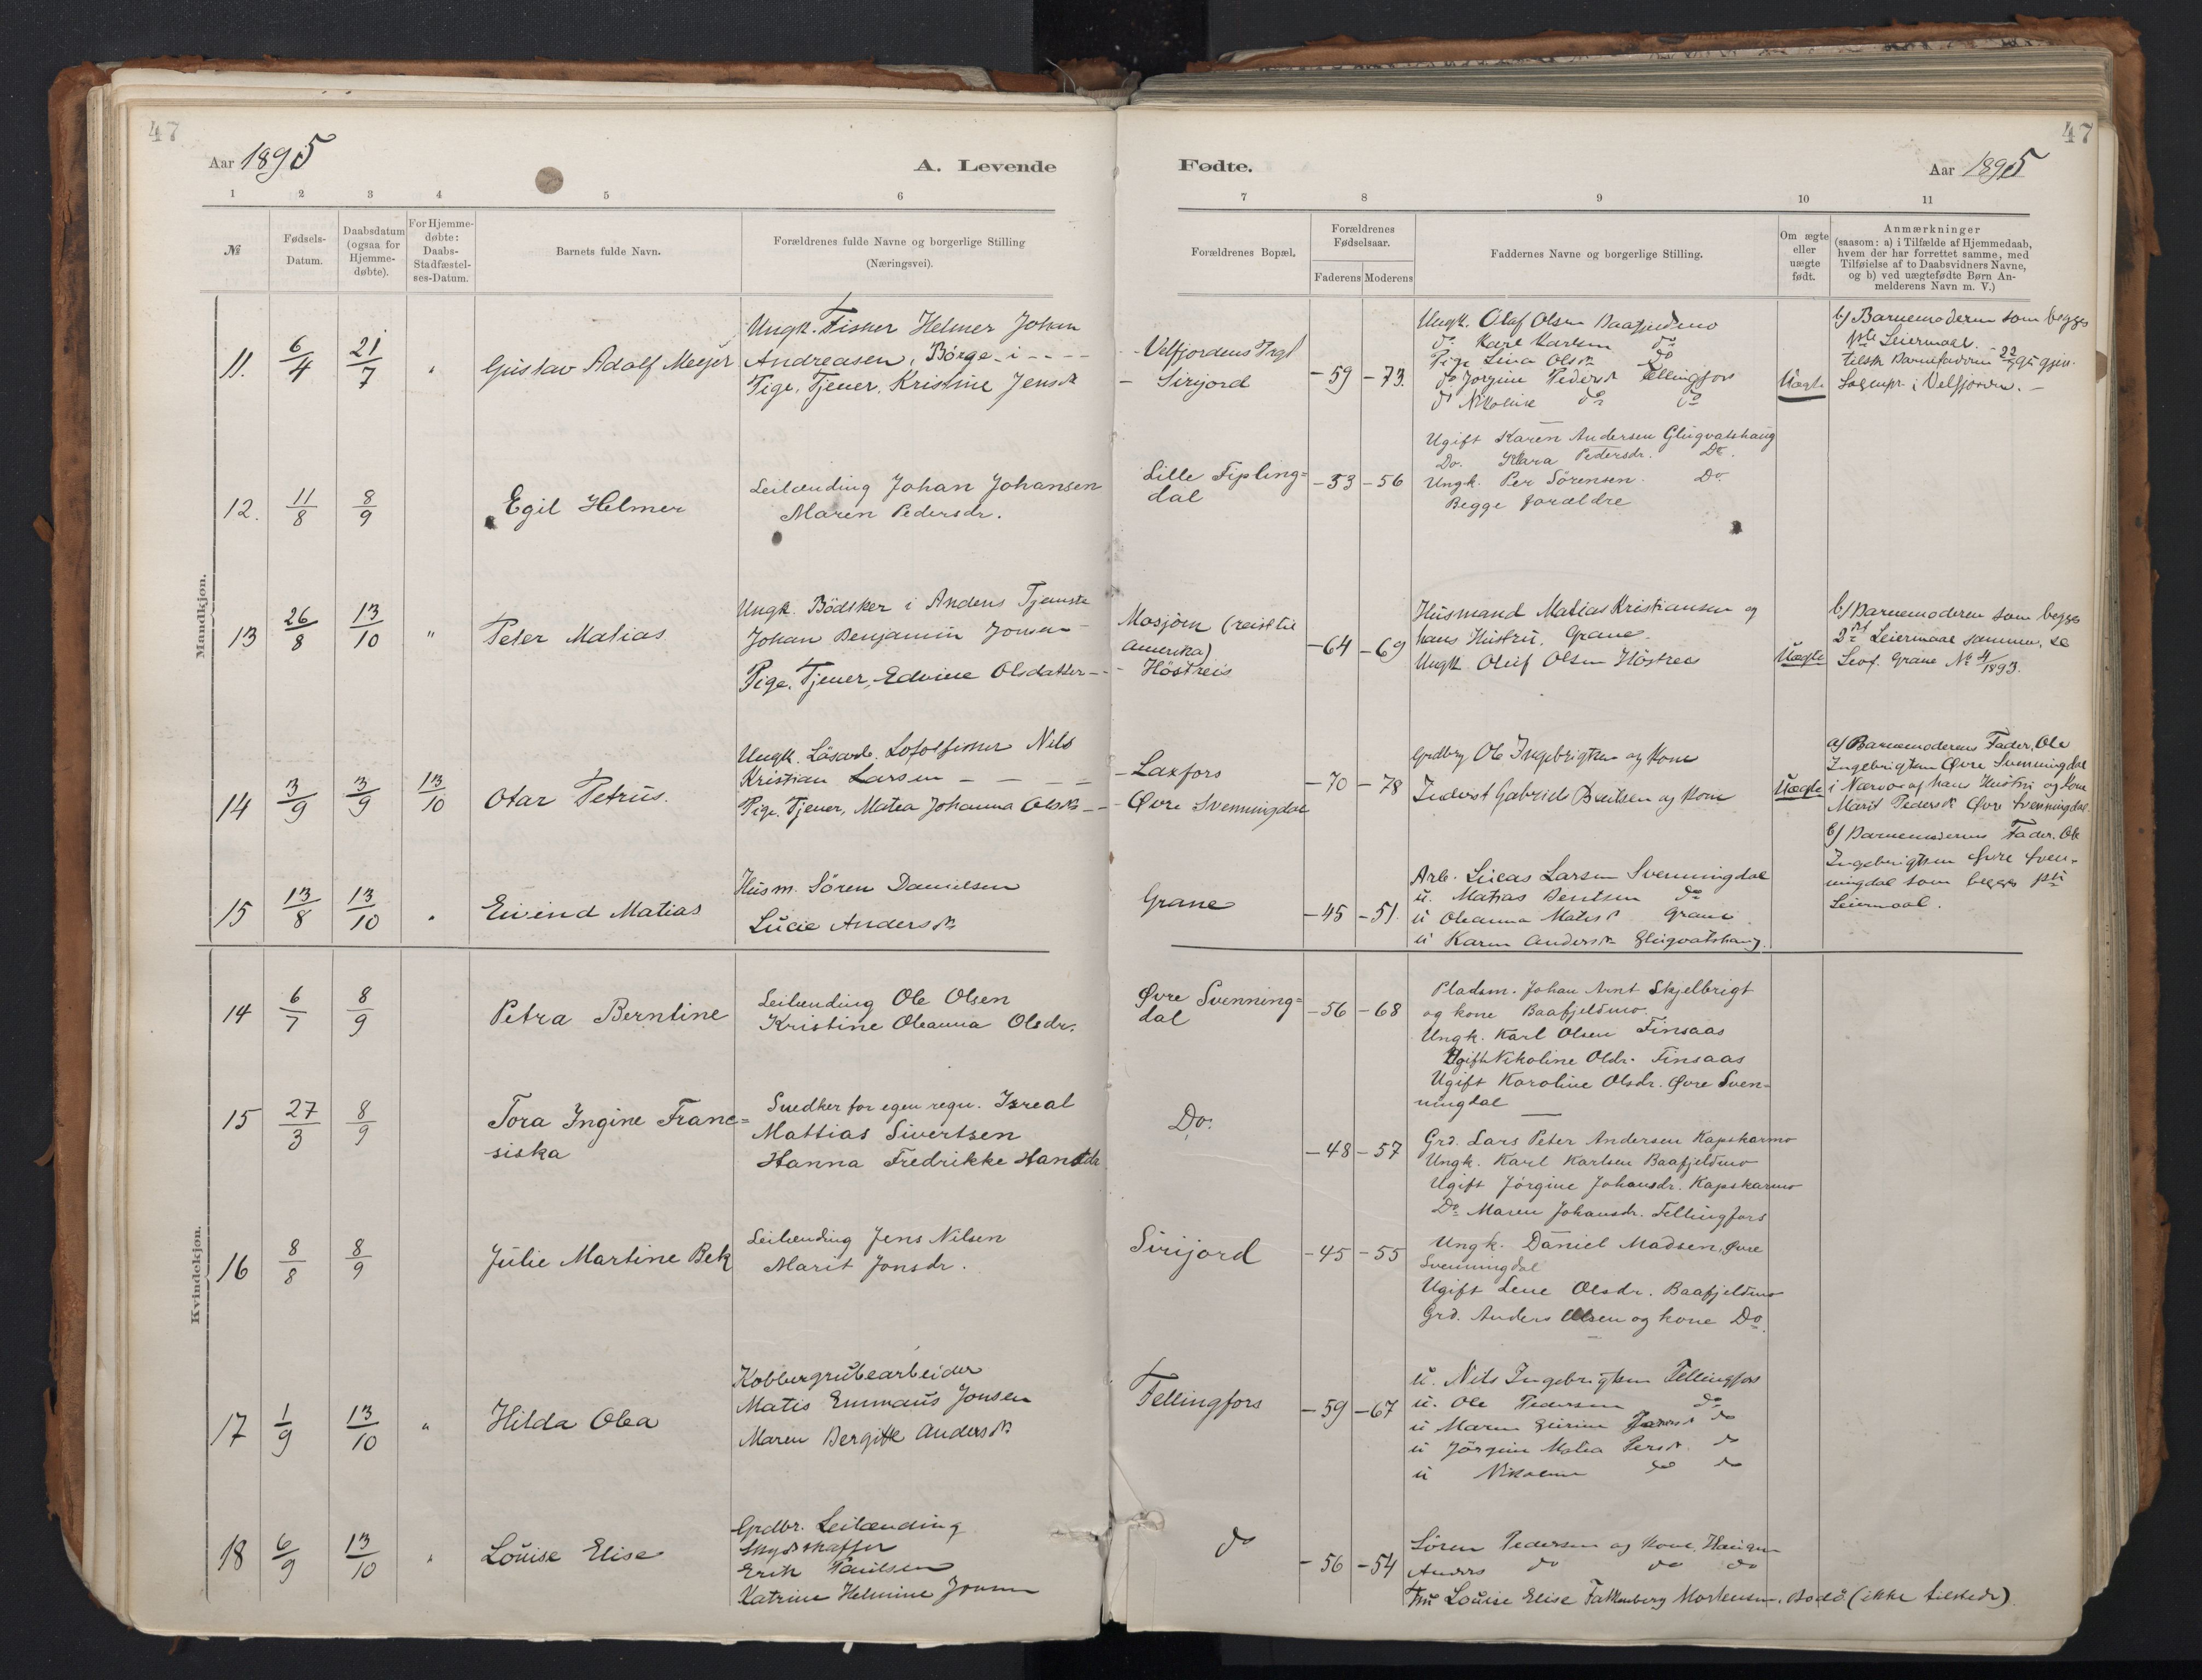 47
Aar 1895
A. Levende
1 2 3 4 5 6
№ Fødsels-Datum. Daabsdatum (ogsaa for Hjemme-døbte). For Hjemme-døbte: Daabs-Stadfæstel-ses-Datum. Barnets fulde Navn. Forældrenes fulde Navne og borgerlige Stilling (Næringsvei).
Mandkjøn.
11. 6/4 21/7 " Gustav Adolf Meyer
Ungk. Fisker Helmer Johan
Andreasen, Børge i - - - -
Pige, Tjener, Kristine Jensdr
12. 11/8 8/9 Egil Helmer
Leilænding Johan Johansen
Maren Pedersdr.
13 26/8 13/10 " Peter Matias
Ungk. Bödsker i Andens Tjeneste
Johan Benjamin Jonsen -
Pige, Tjener, Edvine Olsdatter - -
14 3/9 3/9 13/10 Otar Petrus.
Ungk. Løsarb. Lofotfisker Nils
Kristian Larsen - - - -
Pige. Tjener, Matea Johanna Olsdr - -
15 13/8 13/10 " Eivind Matias
Husm. Sören Danielsen
Lucie Andersdr
Kvindekjøn.
14 6/7 8/9 Petra Berntine
Leilænding Ole Olsen
Kristine Oleanna Olsdr.
15 27/3 8/9 Tora Ingine Franc=
siska
Snedker for egen regn. Isreal
Mattias Sivertsen
Hanna Fredrikke Hansdr
16 8/8 8/9 Julie Martine Bek
Leilænding Jens Nilsen
Marit Jonsdr.
17 1/9 13/10 " Hilda Olea
Kobbergrubearbeider
Matis Emmaus Jonsen
Maren Bergitte Andersdr
18 6/9 13/10 " Louise Elise
Grdbr. Leilænding
Skydsskaffer
Erik Paulsen
Katrine Helmine Jonsen
47
Fødte.
Aar 1895
7 8 9 10 11
Forældrenes Bopæl. Forældrenes Fødselsaar. Faderens Moderens Faddernes Navne og borgerlige Stilling. Om ægte eller uægte født. Anmærkninger (saasom: a) i Tilfælde af Hjemmedaab, hvem der har forrettet samme, med Tilføielse af to Daabsvidners Navne, og b) ved uægtefødte Børn Anmelderens Navn m. V.)
- Velfjordens Prgl
- Sirijord
-59 -73.
Ungk. Olaf Olsen Baafjeldmo
do Karl Karlsen do
Pige Lina Olsdr do
do Jorgine Pedersdr Fellingfors
do Nikoline do do
Uægte
b) Barnemoderen som begges
1ste Leiermaal.
tilsk. Barnefaderen
Sogempr. i Velfjorden. -
Lille Fipling=
dal
-53 -56
Ugift Karen Andersen Glugvatshaug
Do. Klara Pedersdr. Do.
Ungk. Per Sörensen. Do.
Begge forældre
Mosjöen (reist til
Amerika)
- Höstreis
-64 -69
Husmand Matias Kristiansen og
hans Hustru. Grane.
Ungk. Oluf Olsen Höstreis
Uægte
b) Barnemoderen som begges
2det Leiermaal sammen, se
Levf. Grane No 4/1893.
- Laxfors
- Øvre Svenningdal
-70 -78
Grdbrg Ole Ingebrigtsen og Kone
Inderst Gabriel Bentsen og Kone
Uægte
a) Barnemoderens Fader, Ole
Ingebrigtsen Øvre Svenningdal
i Nærvær af hans Hustru og Kone
Marit Pedersdr Øvre Svenningdal.
b) Barnemoderens Fader. Ole
Ingebrigtsen Øvre Sven-
ningdal som begges 1ste
Leiermaal.
Grane
-45 -51.
Arb. Lucas Larsen Svenningdal
u. Matias Bentsen do
u Oleanna Matisdr Grane
u Karen Andersdr Glugvatshaug.
Øvre Svenning=
dal
-56 -68
Pladsm. Johan Arnt Skjelbrigt
og kone Baafjeldmo.
Ungk. Karl Olsen Finsaas
Ugift Nikoline Olsdr. Finsaas
Ugift Karoline Olsdr. Øvre Sven-
ningdal
Do.
-48 -57
Grd. Lars Peter Andersen Kapskarmo
Ungk. Karl Karlsen Baafjeldmo
Ugift Jörgine Johansdr. Kapskarmo
Do Maren Johansdr. Fellingfors
Sirijord
-45 -55
Ungk. Daniel Madsen, Øvre
Svenningdal
Ugift Lene Olsdr. Baafjeldmo
Grd. Anders Olsen og kone Do.
Fellingfors
-59 -67
u. Nils Ingebrigtsen Fellingfors
u. Ole Pedersen do
u Maren do
u Jörgine Matea Persdr. do
u Nikoline do do
do
-56 -54
Sören Pedersen og Kone,
Anders do do do
Fru Louise Elise Falkenberg Mortensen, Bodö (ikke tilstede)